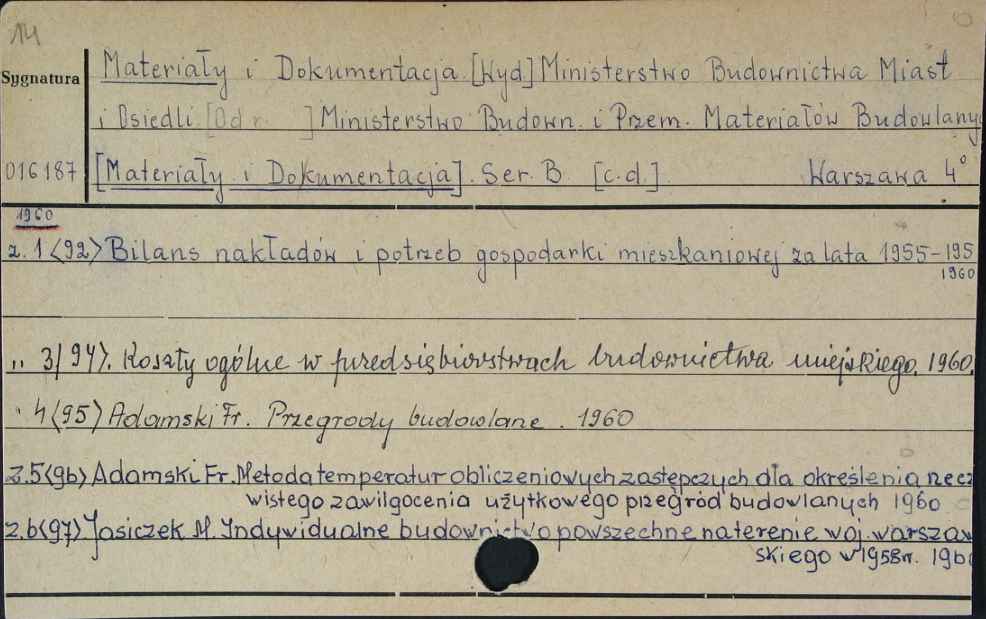 14
Sygnatura
Materiały i Dokumentacja. [Wyd] Ministerstwo Budownictwa Miast
i Osiedli [Od r. ] Ministerstwo Budown. i Przem. Materiałów Budowlany
016187
[Materiały i Dokumentacja]. Ser. B [c.d.]. Warszawa 4°
1960
z. 1 <92> Bilans nakładów i potrzeb gospodarki mieszkaniowej za lata 1955-195
1960
„ 3/94). Koszty ogólne w przedsiębiorstwach budownictwa miejskiego. 1960.
" 4 <95> Adamski Fr. Przegrody budowlane. 1960
z. 5 <96> Adamski Fr. Metoda temperatur obliczeniowych zastępczych dla określenia rzecz
wistego zawilgocenia użytkowego przegród budowlanych 1960
z. 6 <97> Jasiczek M. Indywidualne budownictwo powszechne na terenie woj. warszaw
skiego w 1958 r. 1960